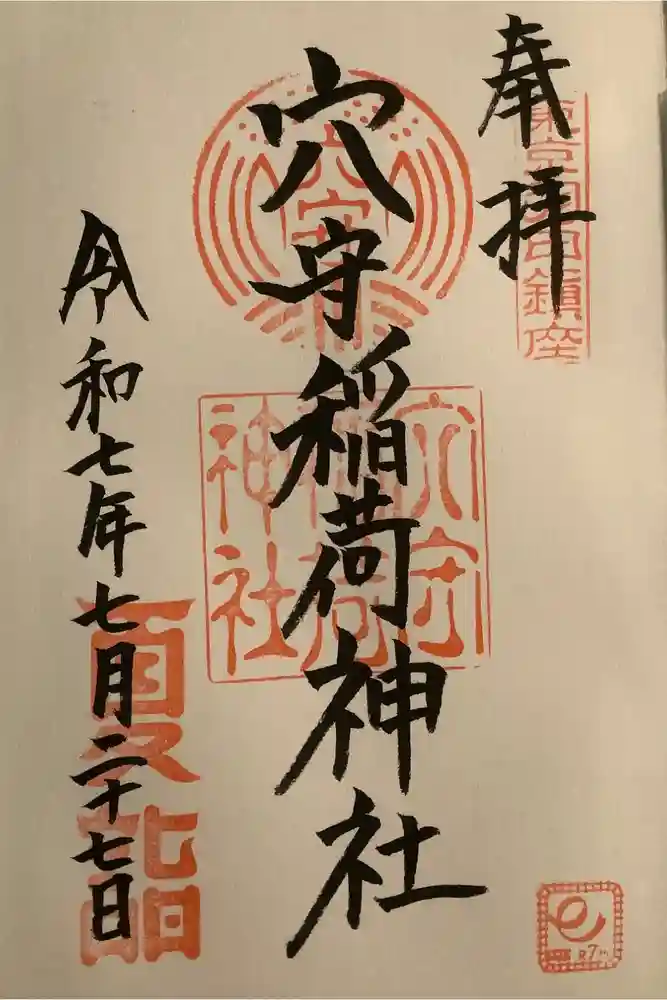 奉拝
東京羽田鎮座
穴守稲荷神社
穴守
稲荷
神社
令和七年七月二十七日
夏詣
R7